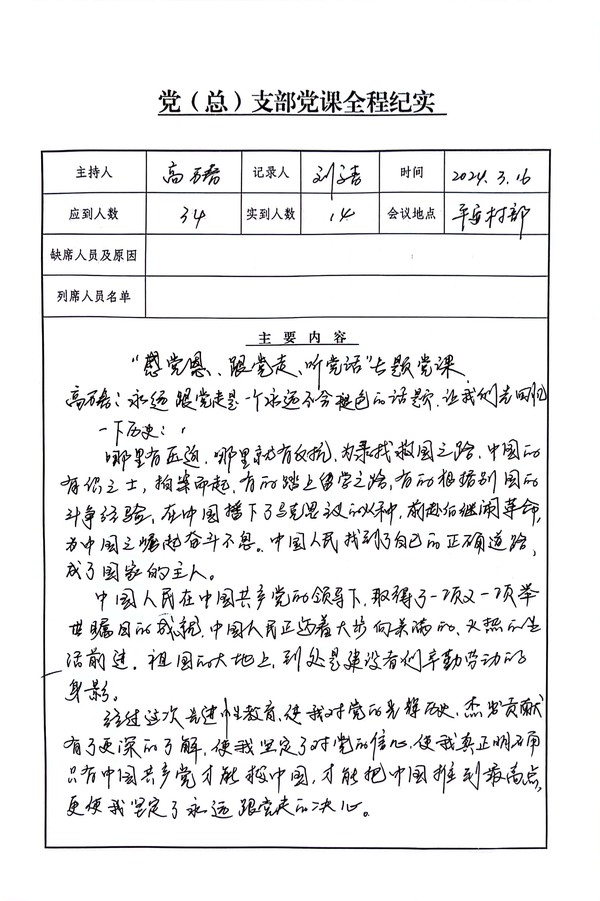 党（总）支部党课全程纪实
主持人 高万磊 记录人 刘洁 时间 2024.3.16
应到人数 34 实到人数 14 会议地点 平安村部
缺席人员及原因
列席人员名单
主要内容
“感党恩、跟党走、听党话”专题党课
高万磊：永远跟党走是一个永远不会褪色的话题，让我们先回忆
一下历史：
哪里有压迫，哪里就有反抗，为寻找救国之路，中国的
有识之士，拍案而起，有的踏上留学之路，有的根据别国的
斗争经验，在中国播下了马克思主义的火种，前赴后继闹革命，
为中国之崛起奋斗不息。中国人民找到了自己的正确道路，
成了国家的主人。
中国人民在中国共产党的领导下，取得了一项又一项举
世瞩目的成就，中国人民正迈着大步向美满的、火热的生
活前进。祖国的大地上，到处是建设者们辛勤劳动的
身影。
经过这次先进性教育，使我对党的光辉历史、杰出贡献
有了更深的了解，使我坚定了对党的信心，使我真正明确
只有中国共产党才能救中国，才能把中国推到最高点，
更使我坚定了永远跟党走的决心。